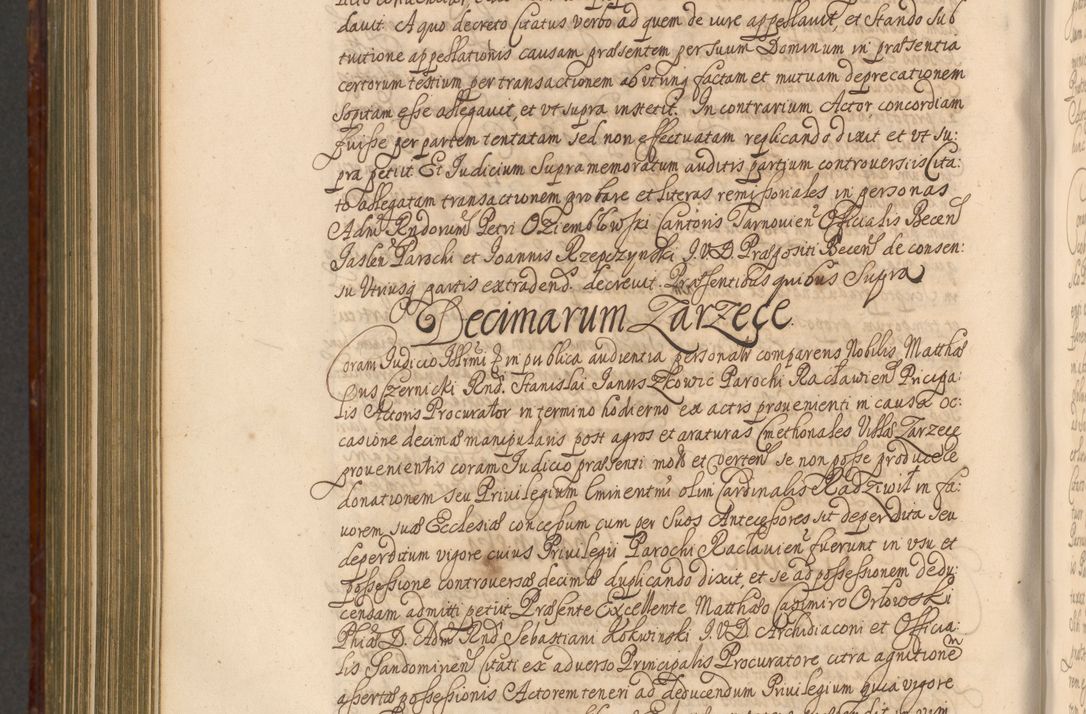 davit. A quo decreto Citatus verbo ad quem de iure appellavit, et stando sub
tuitione appellationis causam præsentem per suum Dominum in præsentia
certorum testium per transactionem ab utrinq factam et mutuam deprecationem
sopitam esse allegavit, et ut supra institit. In contrarium Actor concordiam
fuisse per partem tentatam sed non effectuatam replicando dixit et ut su:
pra petiit Et Iudicium supramemoratum auditis partium controversiis Cita:
to allegatam transactionem probare et literas remissoriales in personas
Adm Rndorum Petri Oziemblowski Cantoris Tarnovien Officialis Becen
Jaslen Parochi et Joannis Rzepczynski I.V.D. Præpositi Becen de consen:
su Utriusq partis extradend. decrevit. Præsentibus quibus Supra
Decimarum Zarzecze.
Coram Iudicio Illrmi & in publica audientia personalr comparens Nobilis Matthæ
us Czernicki Rnd. Stanislai Janusz Zkowic Parochi Racławien Pricipa:
lis Actoris Procurator in termino hodierno ex actis provenienti in causa oc:
casione decimæ manipularis post agros et araturas Cmethonales Villæ Zarzece
provenientis coram Iudicio præsenti mot et verten se non posse producere
donationem seu Privilegium Eminentmi olim Cardinalis Radziwił in fa:
vorem suæ Ecclesiæ concessum cum per suos Antecessores sit deperdita seu
deperditum vigore cuius Privilegii Parochi Racłavien fuerunt in usu et
possessione controversæ decimæ duplicando dixit et se ad possessionem dedu:
cendam admitti petiit Præsente Excellente Matthæo Casimiro Orłowski
Phiæ D. Adm Rnd Sebastiani Kokwinski I.V.D Archidiaconi et Officia:
lis Sandomirien Citati ex adverso Principalis Procuratore citra agnitionem
assertæ possessionis Actorem teneri ad deducendum Privilegium quia vigore